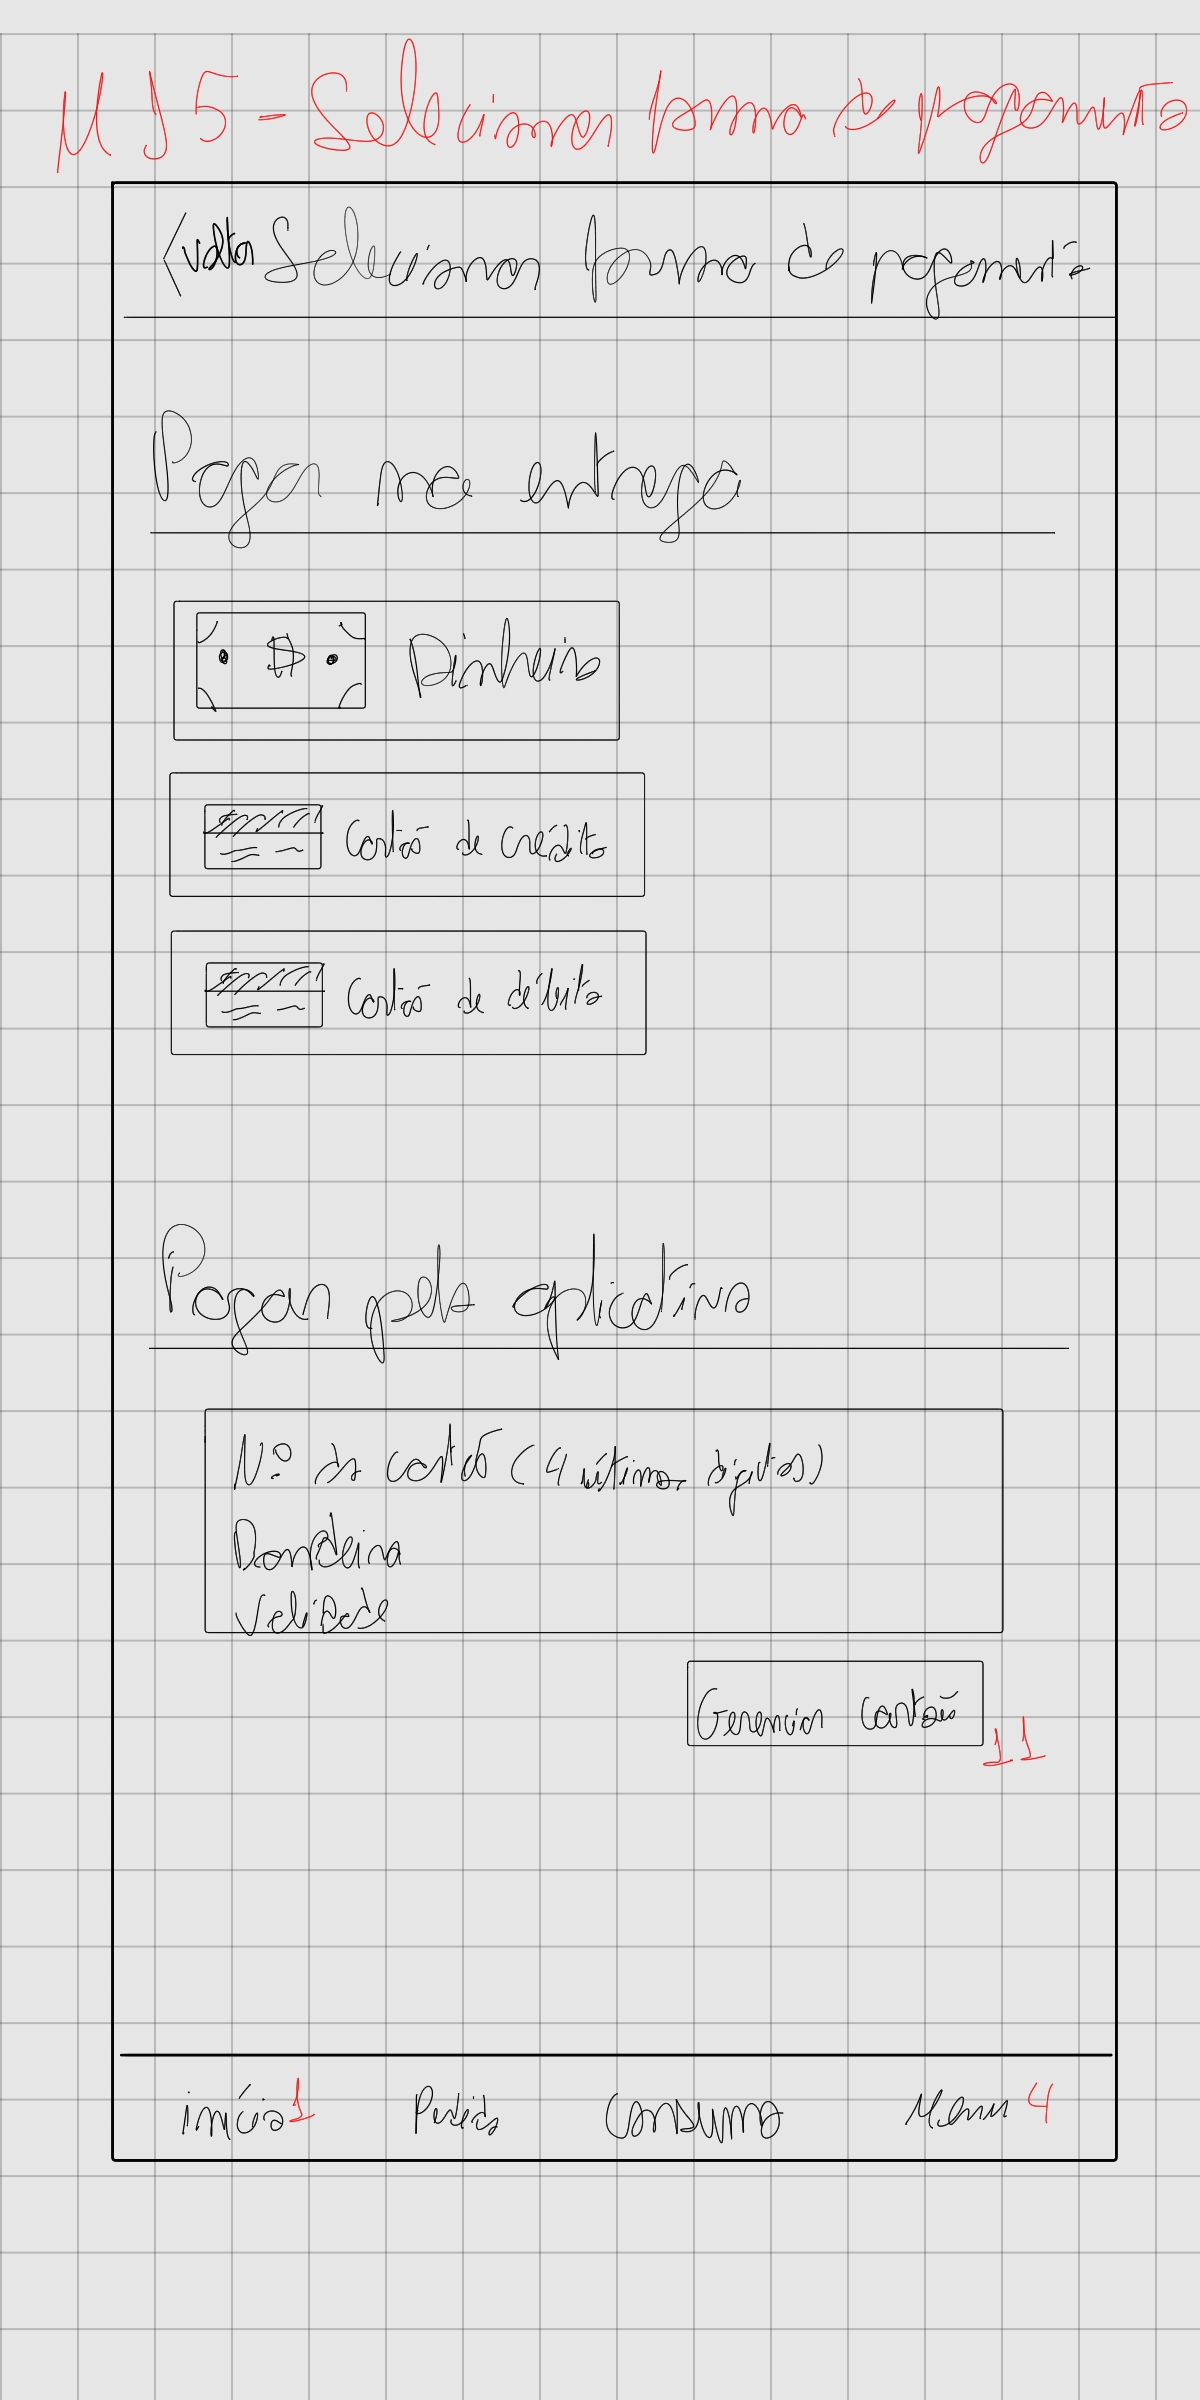 5 - Selecionar forma de pagamento
< voltar Selecionar forma de pagamento
Pagar na entrega
Dinheiro
Cartão de crédito
Cartão de débito
Pagar pelo aplicativo
Nº do cartão (4 últimos dígitos)
Bandeira
Validade
Gerenciar cartões
11
início 1 Pedido Consumo Menu 4